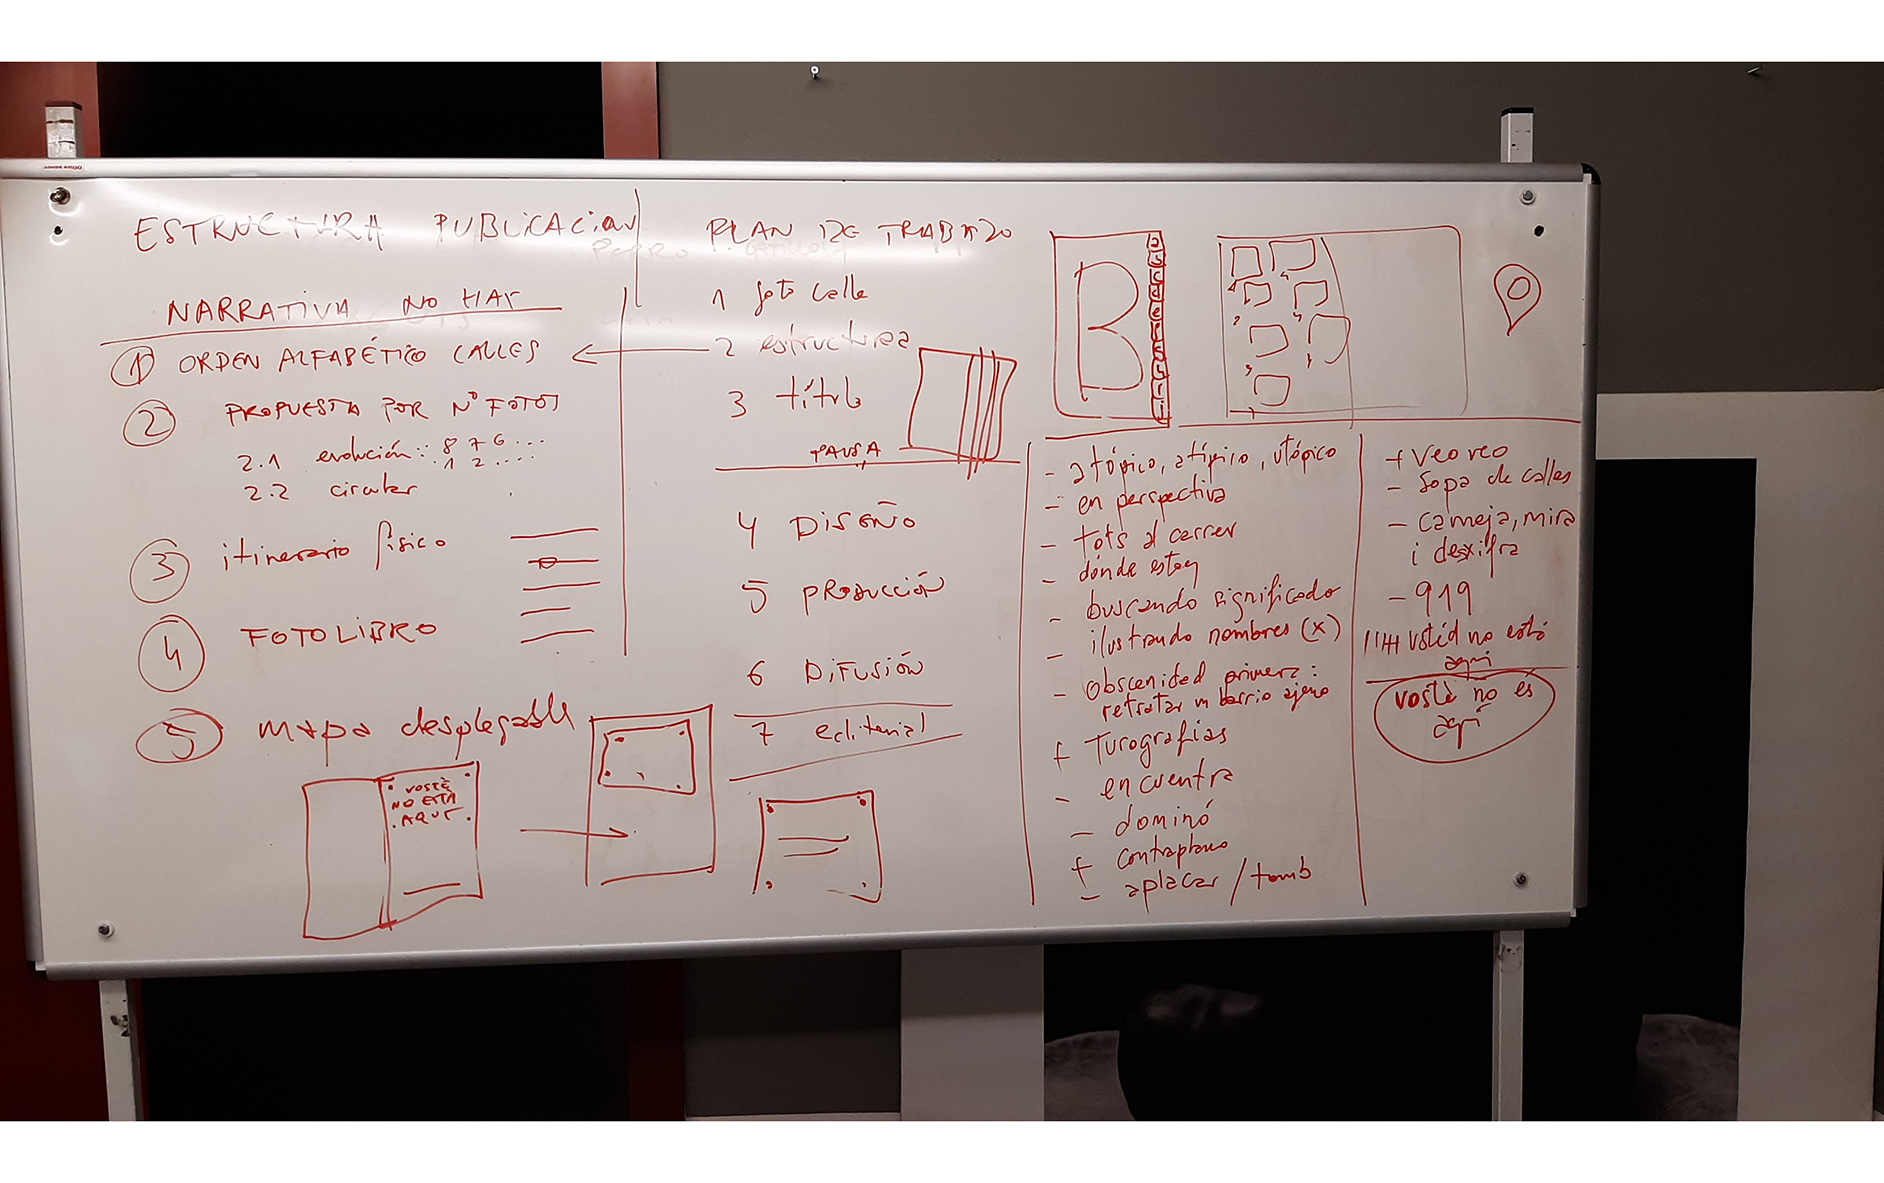 ESTRUCTURA PUBLICACION
NARRATIVA NO HAY
1 ORDEN ALFABÉTICO CALLES
2 PROPUESTA POR Nº FOTOS
2.1 evolución: 8 7 6 ...
1 2 ....
2.2 circular
3 itinerario físico
4 FOTOLIBRO
5 mapa desplegable
VOSTÈ
NO ESTÀ
AQUÍ
PLAN DE TRABAJO
1 foto calle
2 estructura
3 título
PAUSA
4 DISEÑO
5 PRODUCCIÓN
6 DIFUSIÓN
7 editorial
B
- atópico, atípico, utópico
- en perspectiva
- tots al carrer
- dónde estoy
- buscando significado
- ilustrando nombres (x)
- obscenidad primera:
retratar un barrio ajeno
+ Turografias
- encuentra
- dominó
+ contraplano
- aplacar / tomb
+ Veo veo
- Sopa de calles
- Cameja, mira
i desxifra
- 919
ustéd no está
aquí
vostè no és
aquí